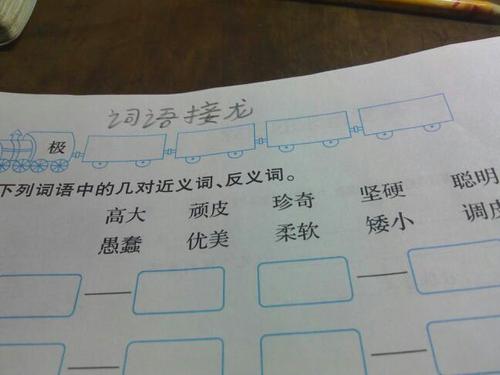 词语接龙
极
下列词语中的几对近义词、反义词。
高大 顽皮 珍奇 坚硬 聪明
愚蠢 优美 柔软 矮小 调皮